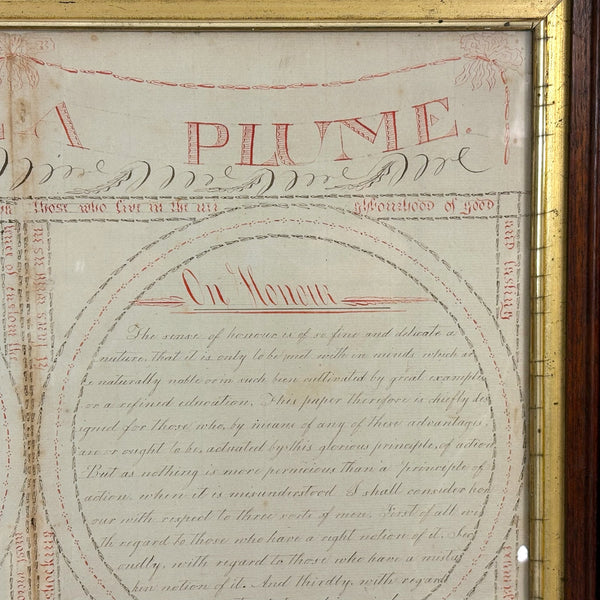 A PLUME.
those who live in the nei ghbourhood of good
and lasting
On Honour
The sense of honour is of so fine and delicate a
nature, that it is only to be met with in minds which ar
e naturally noble or in such been cultivated by great example
or a refined education. This paper therefore is chiefly des
igned for those who, by means of any of these advantages,
are or ought to be, actuated by this glorious principle, of action
But as nothing is more pernicious than a principle of
action, when it is misunderstood. I shall consider hon
our with respect to three sorts of men. First of all wi
th regard to those who have a right notion of it. Sec
ondly, with regard to those who have a mista
ken notion of it. And thirdly, with regard